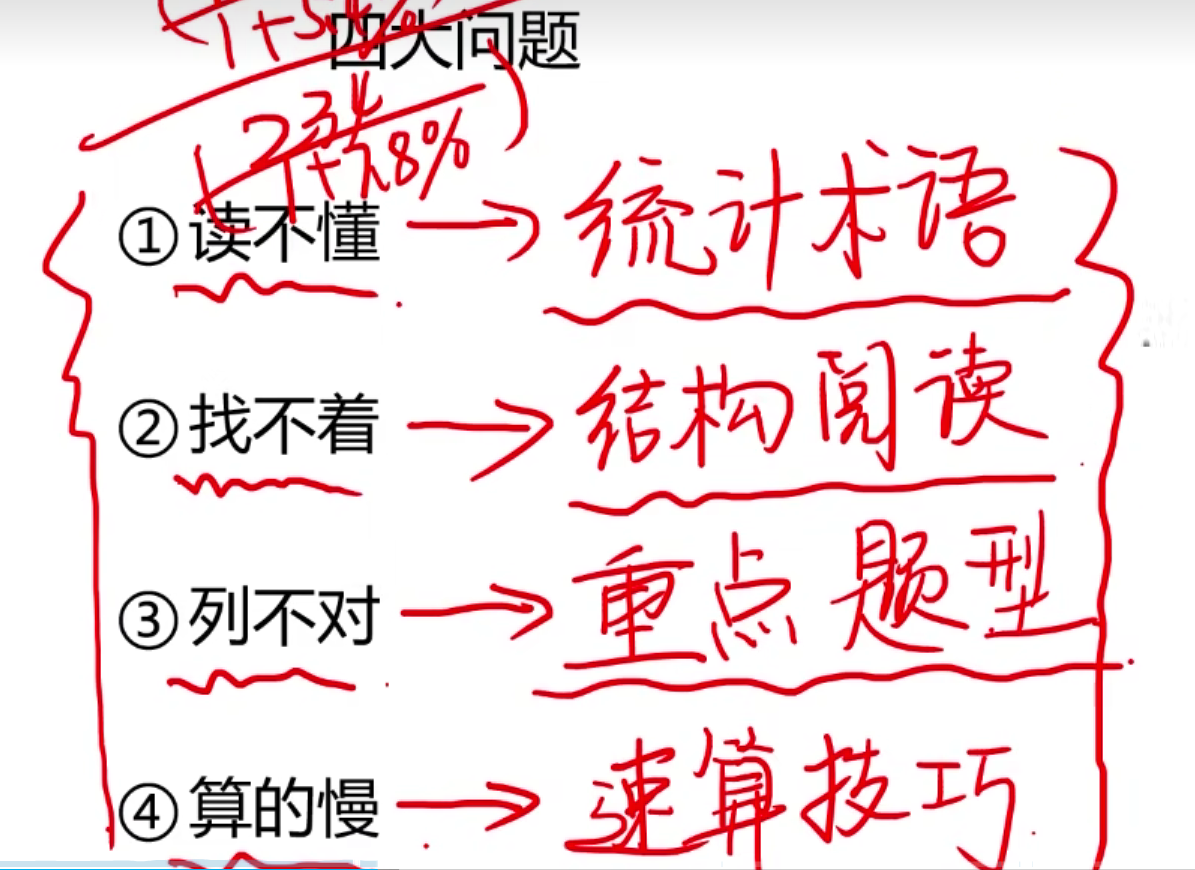 四大问题
234
1+7.8%
①读不懂 → 统计术语
②找不着 → 结构阅读
③列不对 → 重点题型
④算的慢 → 速算技巧